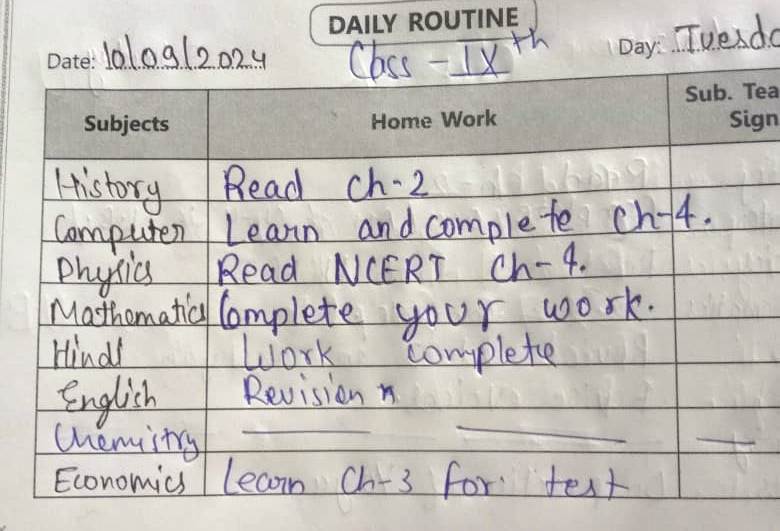 DAILY ROUTINE
Date: 10/09/2024 Class - IXth Day: Tuesda
Subjects Home Work Sub. Tea Sign
History Read Ch-2
Computer Learn and complete Ch-4.
Physics Read NCERT Ch-4.
Mathematics Complete your work.
Hindi Work complete
English Revision
Chemistry — — —
Economics Learn Ch-3 for test